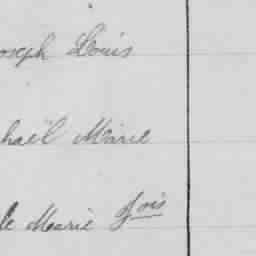 oseph Louis
haël Marie
le Marie fois